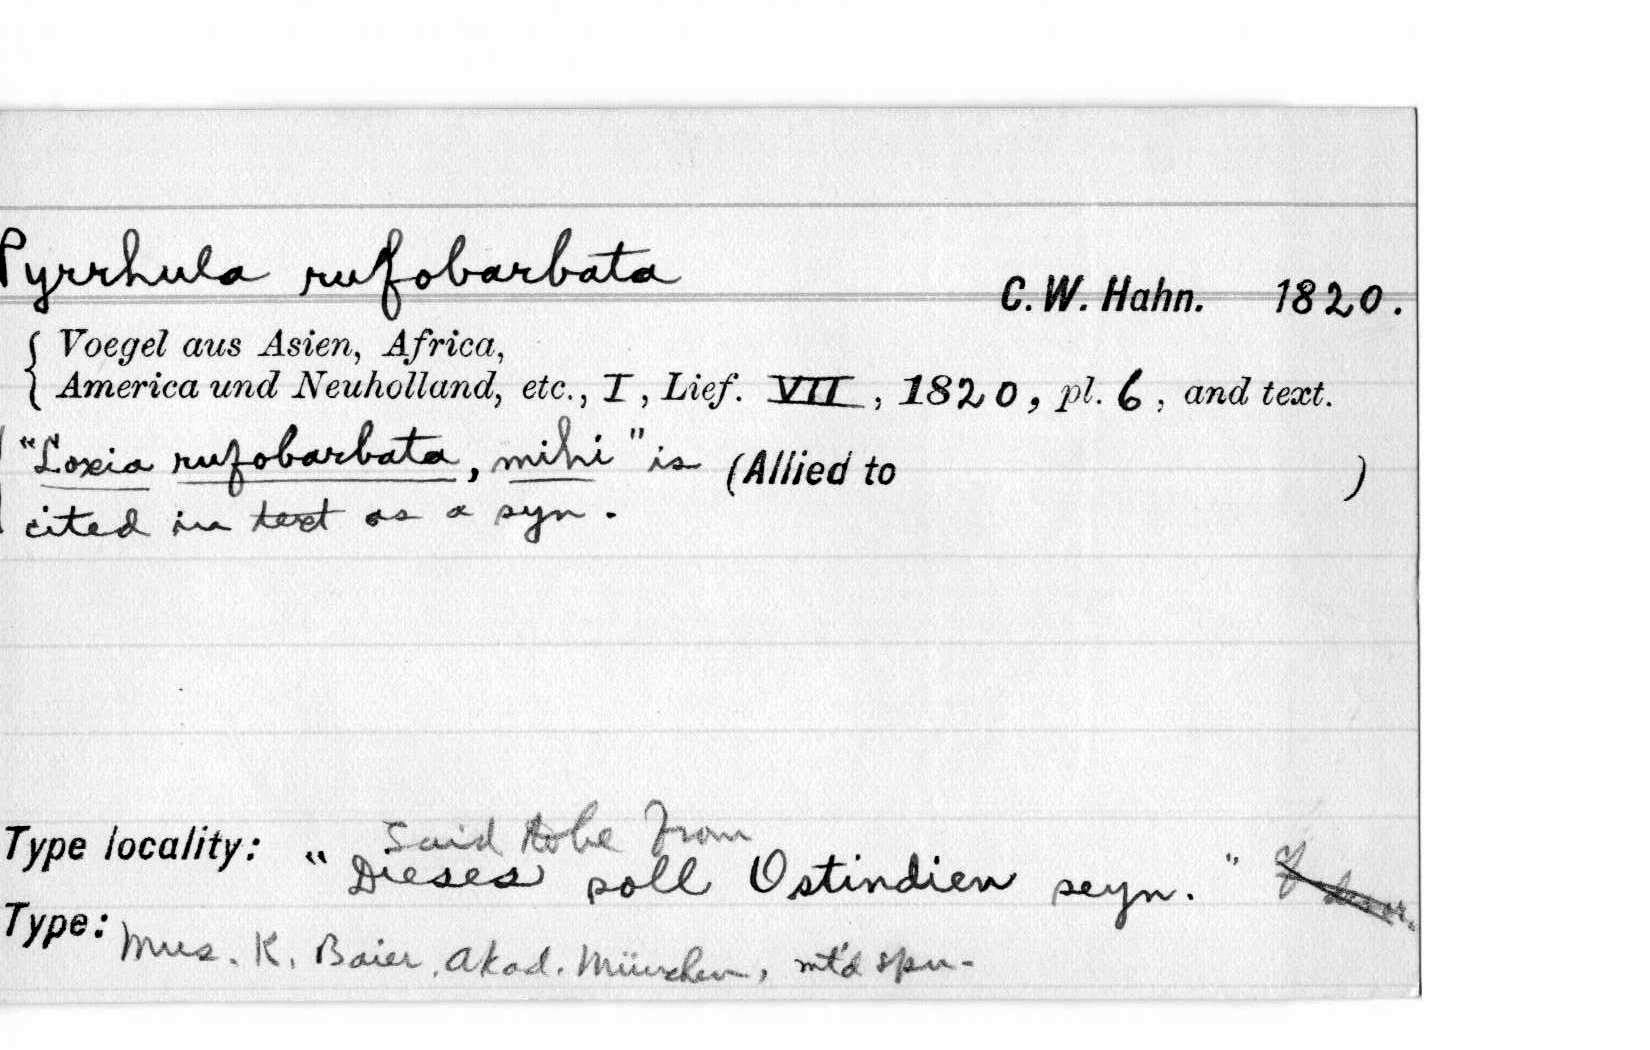 Pyrrhula rufobarbata C. W. Hahn. 1820.
Voegel aus Asien, Africa,
America und Neuholland, etc., I, Lief. VII, 1820, pl. 6, and text.
"Loxia rufobarbata, mihi" is (Allied to )
cited in text as a syn.
Said to be from
Type locality: "Dieses soll Ostindien seyn."
Type: Mus. K. Baier. Akad. München, mt'd spn.